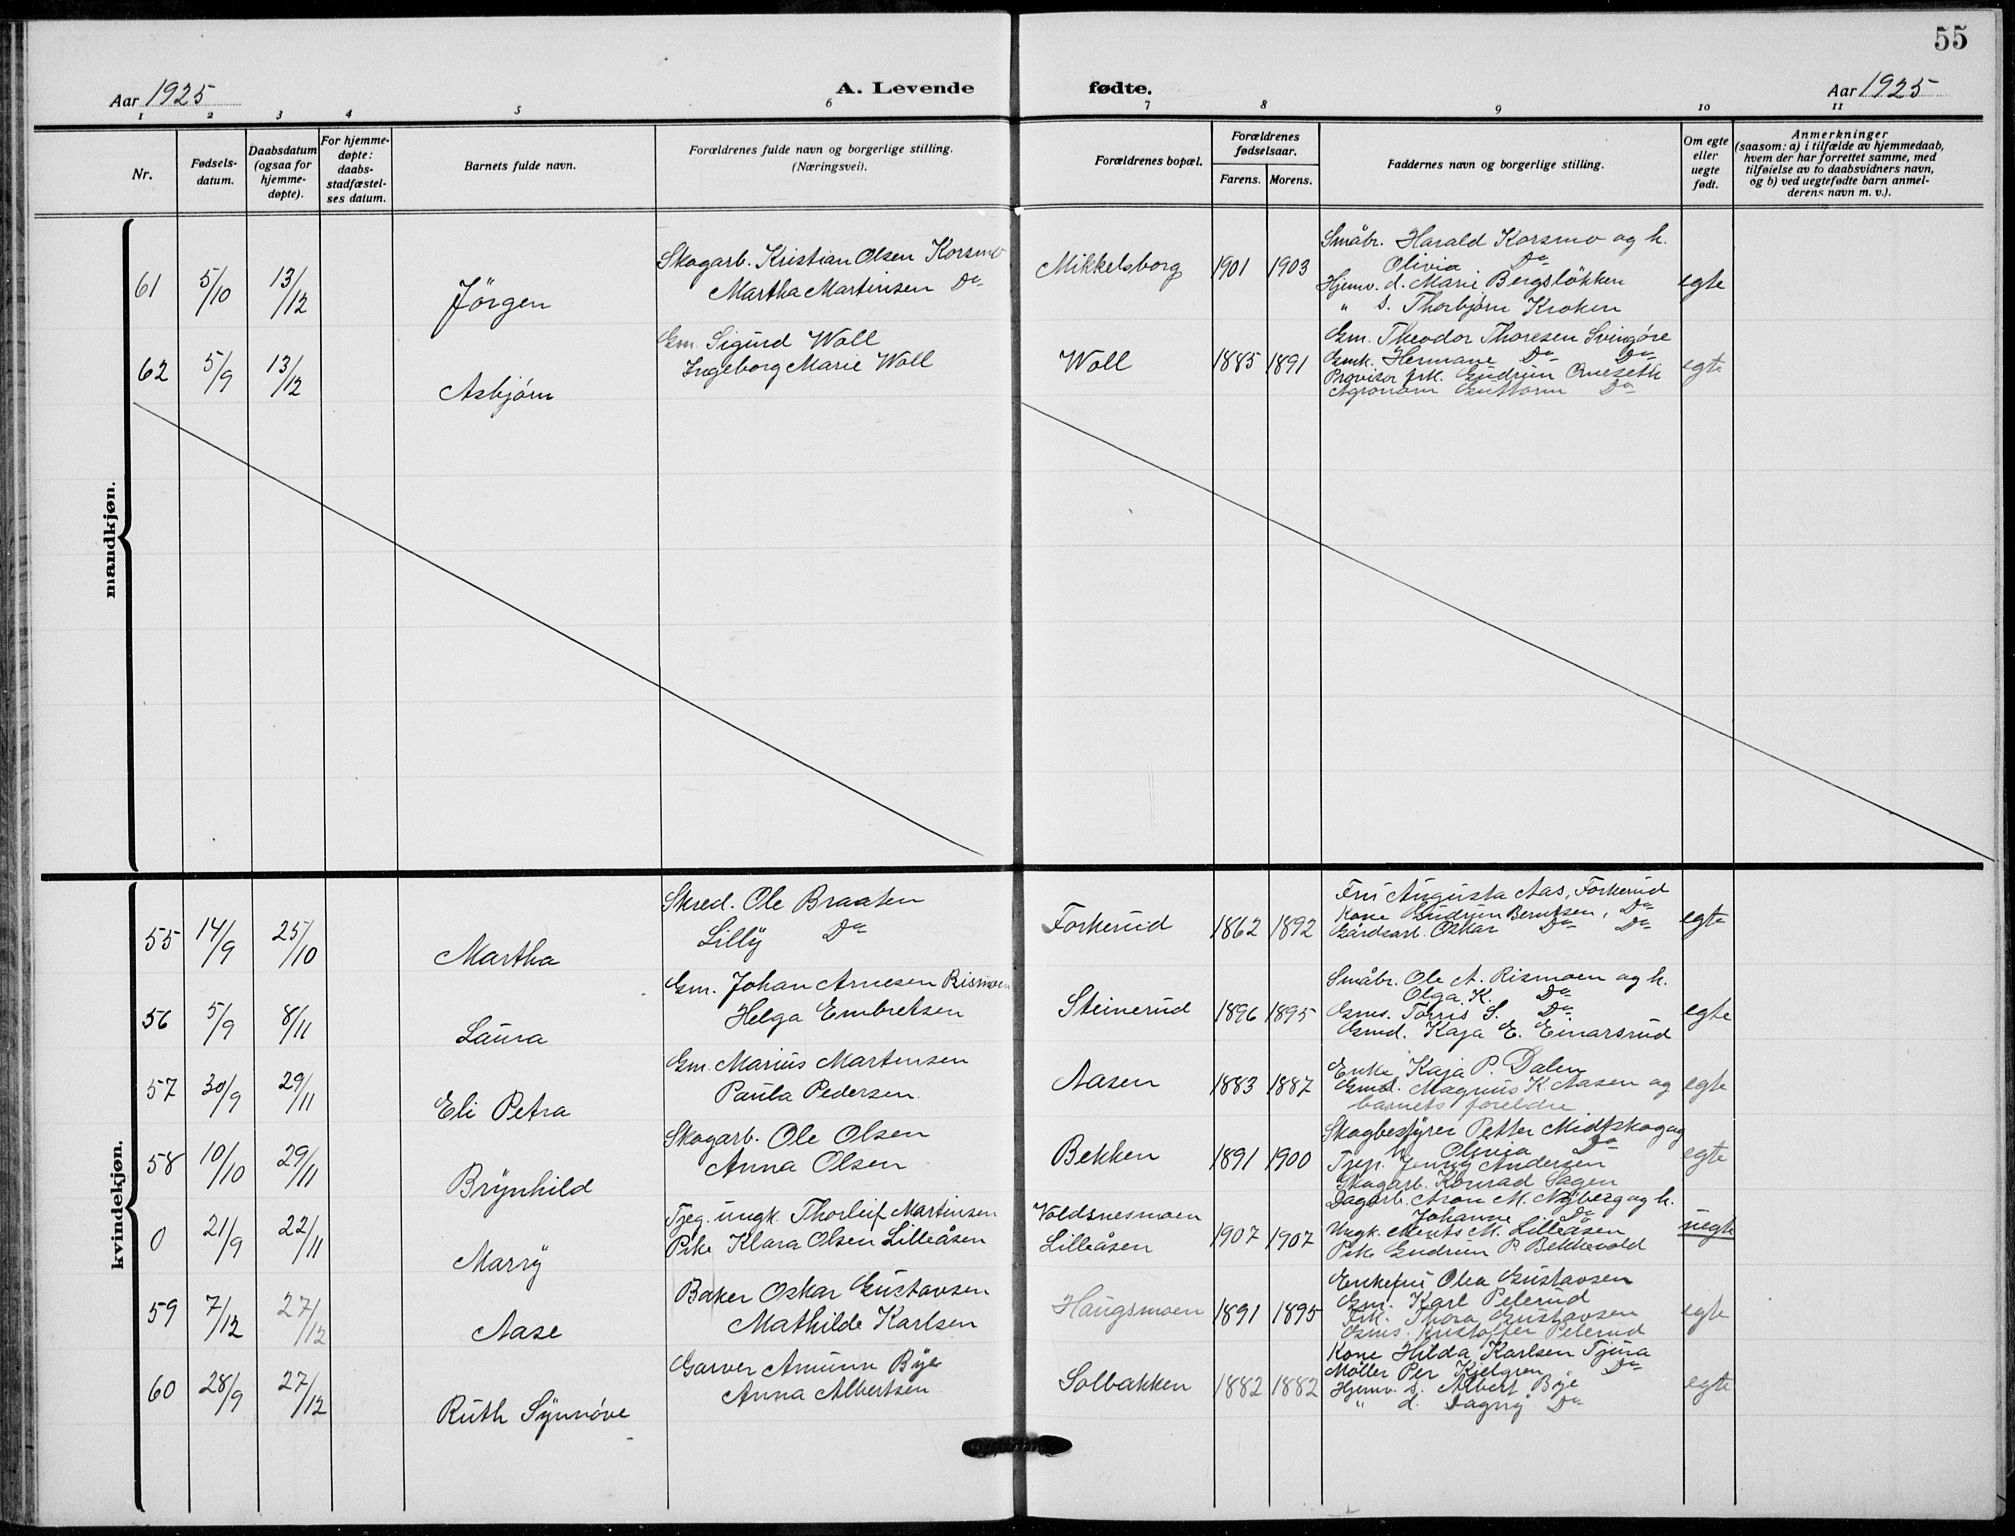 55
Aar 1925
A. Levende fødte.
Aar 1925
1 2 3 4 5 6 7 8 9 10 11
Nr.
Fødsels-
datum.
Daabsdatum
(ogsaa for
hjemme-
døpte).
For hjemme-
døpte:
daabs-
stadfæstel-
ses datum.
Barnets fulde navn.
Forældrenes fulde navn og borgerlige stilling.
(Næringsvei).
Forældrenes bopæl.
Forældrenes
fødselsaar.
Farens. Morens.
Faddernes navn og borgerlige stilling.
Om egte
eller
uegte
født.
Anmerkninger
(saasom: a) i tilfælde av hjemmedaab,
hvem der har forrettet samme, med
tilføielse av to daabsvidners navn,
og b) ved uegtefødte barn anmel-
derens navn m. v.).
mandkjøn.
61 5/10 13/12 Jörgen
Skogarb. Kristian Olsen Korsmo
Martha Martinsen Do
Mikkelsborg 1901 1903
Småbr. Harald Korsmo og h.
Olivia Do
Hjemv. d. Marie Bergsløkken
" s. Thorbjørn Kroken
egte
62 5/9 13/12 Asbjørn
Gm. Sigurd Woll
Ingeborg Marie Woll
Woll 1885 1891
Gm. Theodor Thoresen Svingøre
Gmk. Hermane Do Do
Provisor frk. Gudrun Orneseth
Agronom Guttorm Do
egte
kvindekjøn.
55 14/9 25/10 Martha
Skred. Ole Braaten
Lilly Do
Forkerud 1862 1892
Fru Augusta Aas, Forkerud
Kone Gudrun Berntsen, Do
Gårdsarb. Oskar Do Do
egte
56 5/9 8/11 Laura
Gm. Johan Arnesen Rismoen
Helga Embretsen
Steinerud 1896 1895
Småbr. Ole A. Rismoen og h.
Olga K. Do
Gms. Torris S. Do
Gmd. Kaja E. Einarsrud
egte
57 30/9 29/11 Eli Petra
Gm. Marius Martinsen
Paula Pedersen
Aasen 1883 1887
Enke Kaja P. Dalen
Gms. Magnus K. Aasen og
barnets foreldre
egte
58 10/10 29/11 Brynhild
Skogarb. Ole Olsen
Anna Olsen
Bekken 1891 1900
Skogbestyrer Petter Midtskog og
h. Olivia Do
Tjep. Jenny Andersen
Skogarb. Konrad Sagen
egte
0 21/9 22/11 Marry
Tjeg. ungk. Thorleif Martinsen
Pike Klara Olsen Lilleåsen
Voldsnesmoen
Lilleåsen
1907 1907
Dagarb. Aron M. Nyberg og h.
Johanne Do
Ungk. M. Lilleåsen
Pike Gudrun P. Bekkevold
uegte
59 7/12 27/12 Aase
Baker Oskar Gustavsen
Mathilde Karlsen
Haugsmoen 1891 1895
Enkefru Olea Gustavsen
Gm. Karl Pelerud
Frk. Thora Gustavsen
Gms. Kristoffer Pelerud
egte
60 28/9 27/12 Ruth Synnøve
Garver Amunn Bye
Anna Albertsen
Solbakken 1882 1882
Kone Hilda Karlsen Tjura
Møller Per Kjelgren Do
Hjemv. s. Albert Bye
" d. Dagny Do
egte